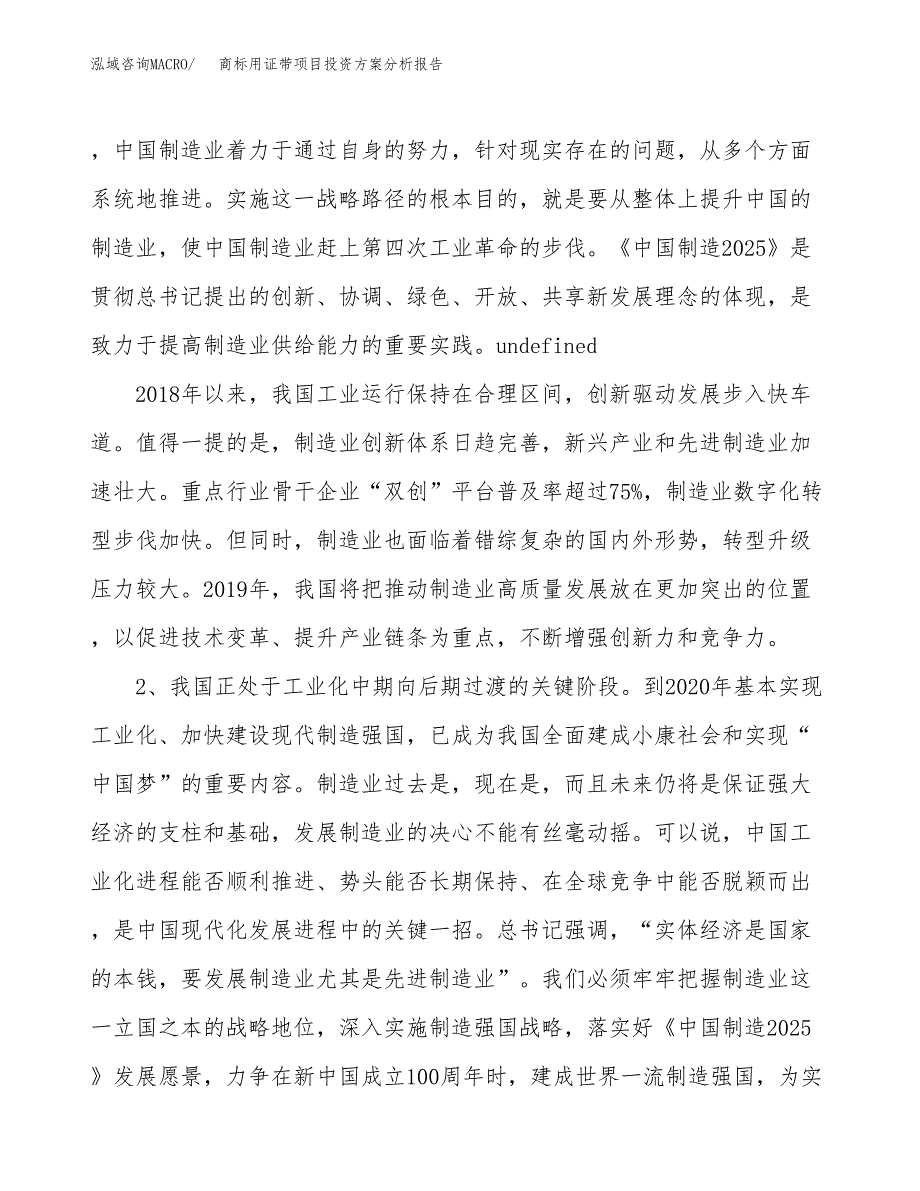 泓域咨询MACRO/ 商标用证带项目投资方案分析报告
，中国制造业着力于通过自身的努力，针对现实存在的问题，从多个方面
系统地推进。实施这一战略路径的根本目的，就是要从整体上提升中国的
制造业，使中国制造业赶上第四次工业革命的步伐。《中国制造2025》是
贯彻总书记提出的创新、协调、绿色、开放、共享新发展理念的体现，是
致力于提高制造业供给能力的重要实践。undefined
2018年以来，我国工业运行保持在合理区间，创新驱动发展步入快车
道。值得一提的是，制造业创新体系日趋完善，新兴产业和先进制造业加
速壮大。重点行业骨干企业“双创”平台普及率超过75%，制造业数字化转
型步伐加快。但同时，制造业也面临着错综复杂的国内外形势，转型升级
压力较大。2019年，我国将把推动制造业高质量发展放在更加突出的位置
，以促进技术变革、提升产业链条为重点，不断增强创新力和竞争力。
2、我国正处于工业化中期向后期过渡的关键阶段。到2020年基本实现
工业化、加快建设现代制造强国，已成为我国全面建成小康社会和实现“
中国梦”的重要内容。制造业过去是，现在是，而且未来仍将是保证强大
经济的支柱和基础，发展制造业的决心不能有丝毫动摇。可以说，中国工
业化进程能否顺利推进、势头能否长期保持、在全球竞争中能否脱颖而出
，是中国现代化发展进程中的关键一招。总书记强调，“实体经济是国家
的本钱，要发展制造业尤其是先进制造业”。我们必须牢牢把握制造业这
一立国之本的战略地位，深入实施制造强国战略，落实好《中国制造2025
》发展愿景，力争在新中国成立100周年时，建成世界一流制造强国，为实